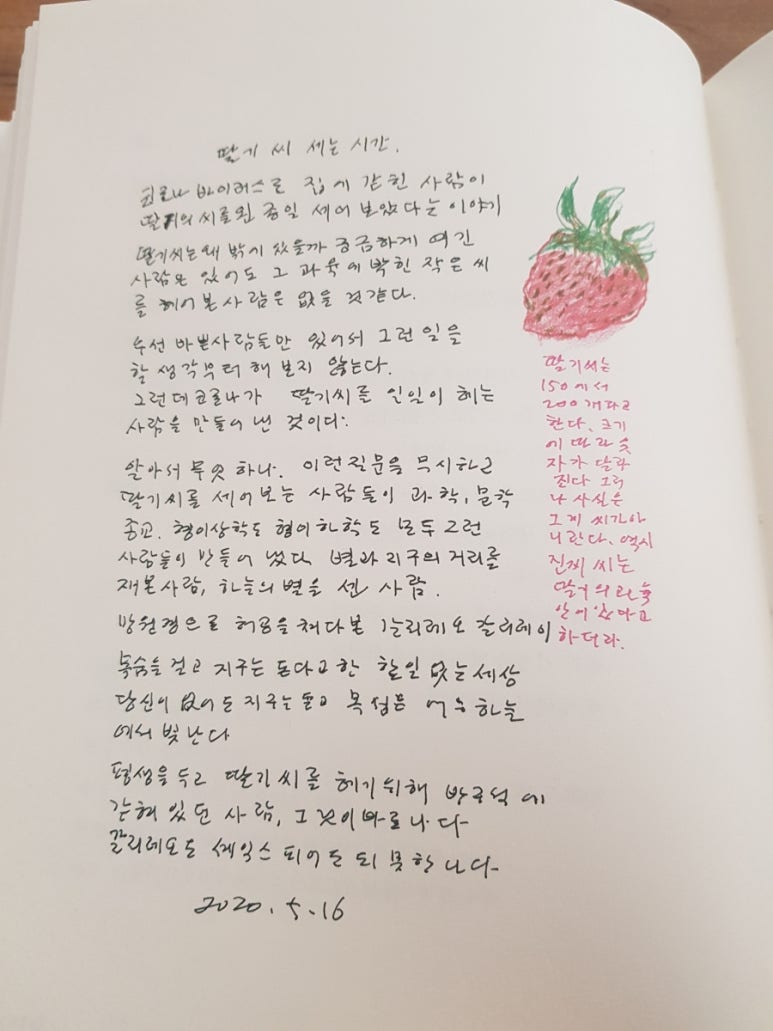 딸기 씨 세는 시간.
코로나 바이러스로 집에 갇힌 사람이
딸기의 씨를 왼 종일 세어 보았다는 이야기
딸기씨는 왜 밖에 있을까 궁금하게 여긴
사람은 있어도 그 과육에 박힌 작은 씨
를 헤어본 사람은 없을 것같다.
우선 바쁜사람들만 있어서 그런 일을
할 생각부터 해 보지 않는다.
그런데 코로나가 딸기씨를 일일이 헤는
사람을 만들어 낸 것이다.
알아서 무엇 하나. 이런 질문을 무시하고
딸기씨를 세어보는 사람들이 과학, 문학
종교. 형이상학도 형이하학도 모두 그런
사람들이 만들어 냈다. 별과 지구의 거리를
재본사람, 하늘의 별을 센 사람.
망원경으로 허공을 쳐다본 갈릴레오 갈릴레이
목숨을 걸고 지구는 돈다고 한 할일 없는 세상
당신이 없어도 지구는 돌고 목성은 어느 하늘
에서 빛난다
평생을 두고 딸기씨를 헤기위해 방구석에
갇혀 있던 사람, 그것이 바로 나다
갈릴레오도 셰익스피어도 되 못한 나다
2020. 5. 16
딸기씨는
150에서
200개라고
한다. 크기
에 따라 숫
자가 달라
진다 그러
나 사실은
그게 씨가아
니란다. 역시
진짜 씨는
딸기의 과육
안에 있다고
하더라.